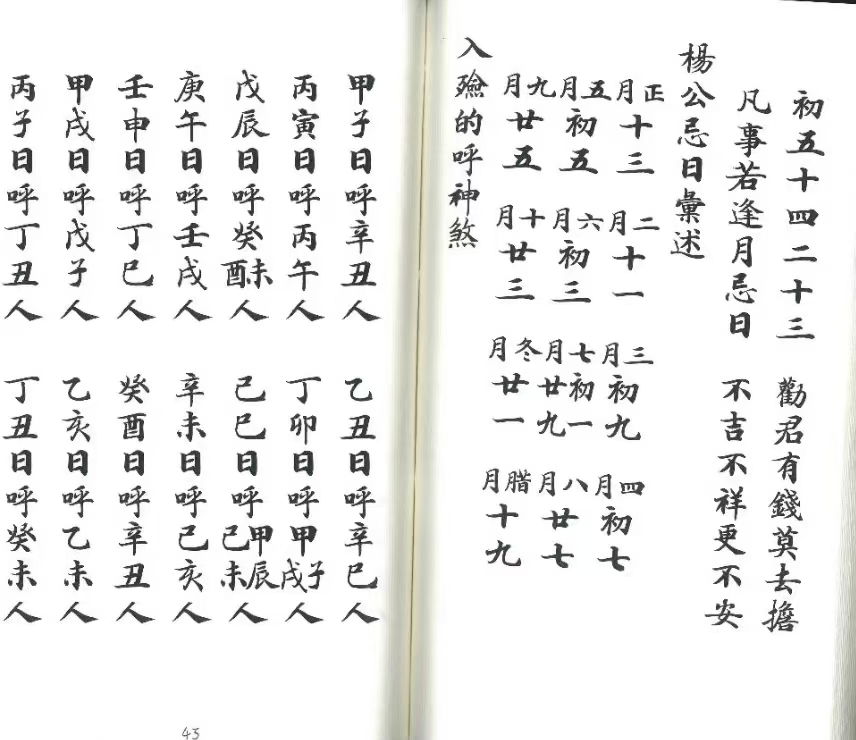 初五十四二十三　勸君有錢莫去擔
凡事若逢月忌日　不吉不祥更不安
楊公忌日彙述
正月十三　二月十一　三月初九　四月初七
五月初五　六月初三　七月初一廿九　八月廿七
九月廿五　十月廿三　冬月廿一　腊月十九
入殮的呼神煞
甲子日呼辛丑人　乙丑日呼辛巳人
丙寅日呼丙午人　丁卯日呼甲子戌人
戊辰日呼癸未酉人　己巳日呼甲辰己未人
庚午日呼壬戌人　辛未日呼己亥人
壬申日呼丁巳人　癸酉日呼辛丑人
甲戌日呼戊子人　乙亥日呼乙未人
丙子日呼丁丑人　丁丑日呼癸未人
43